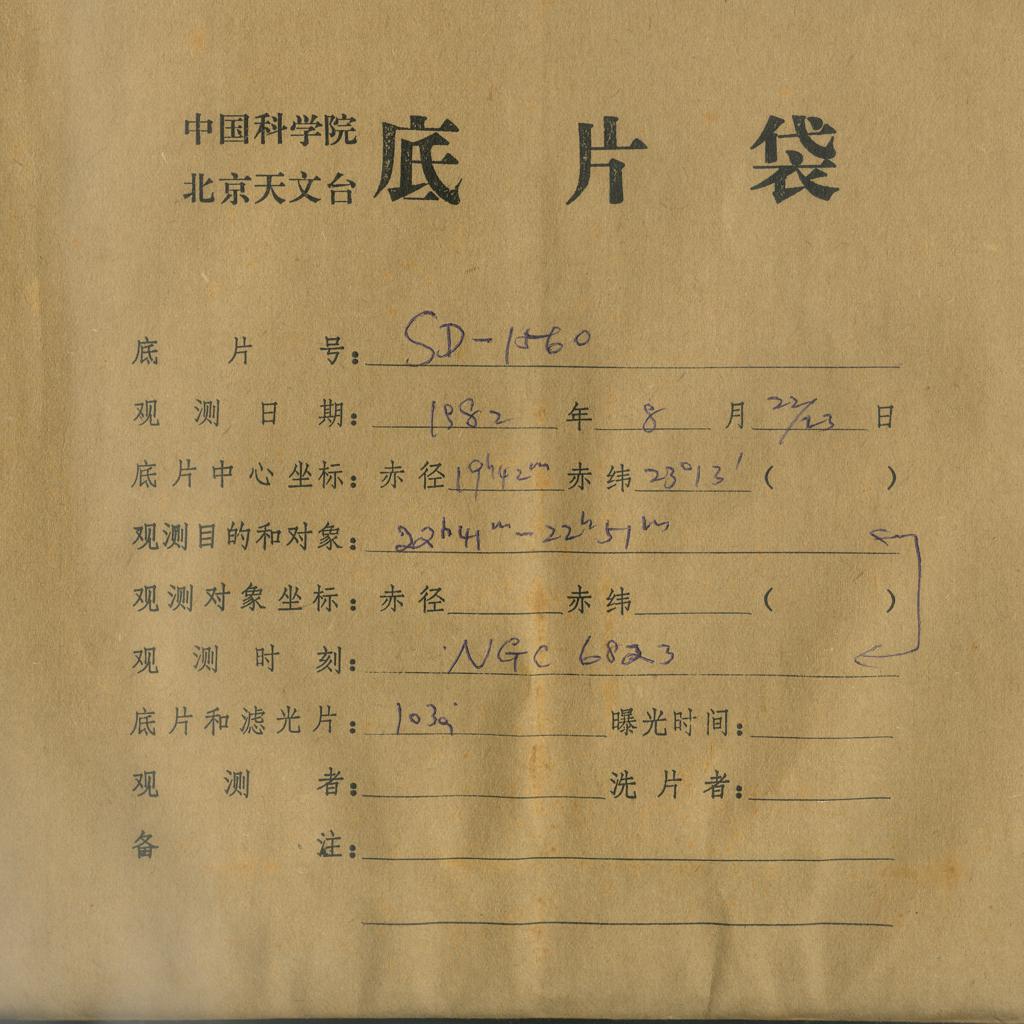 中国科学院
北京天文台
底片袋
底片号：SD-1560
观测日期：1982年8月22/23日
底片中心坐标：赤径19h42m赤纬23°13′（ ）
观测目的和对象：22h41m-22h51m
观测对象坐标：赤径 赤纬 （ ）
观测时刻：NGC 6823
底片和滤光片：103a 曝光时间：
观测者： 洗片者：
备注：